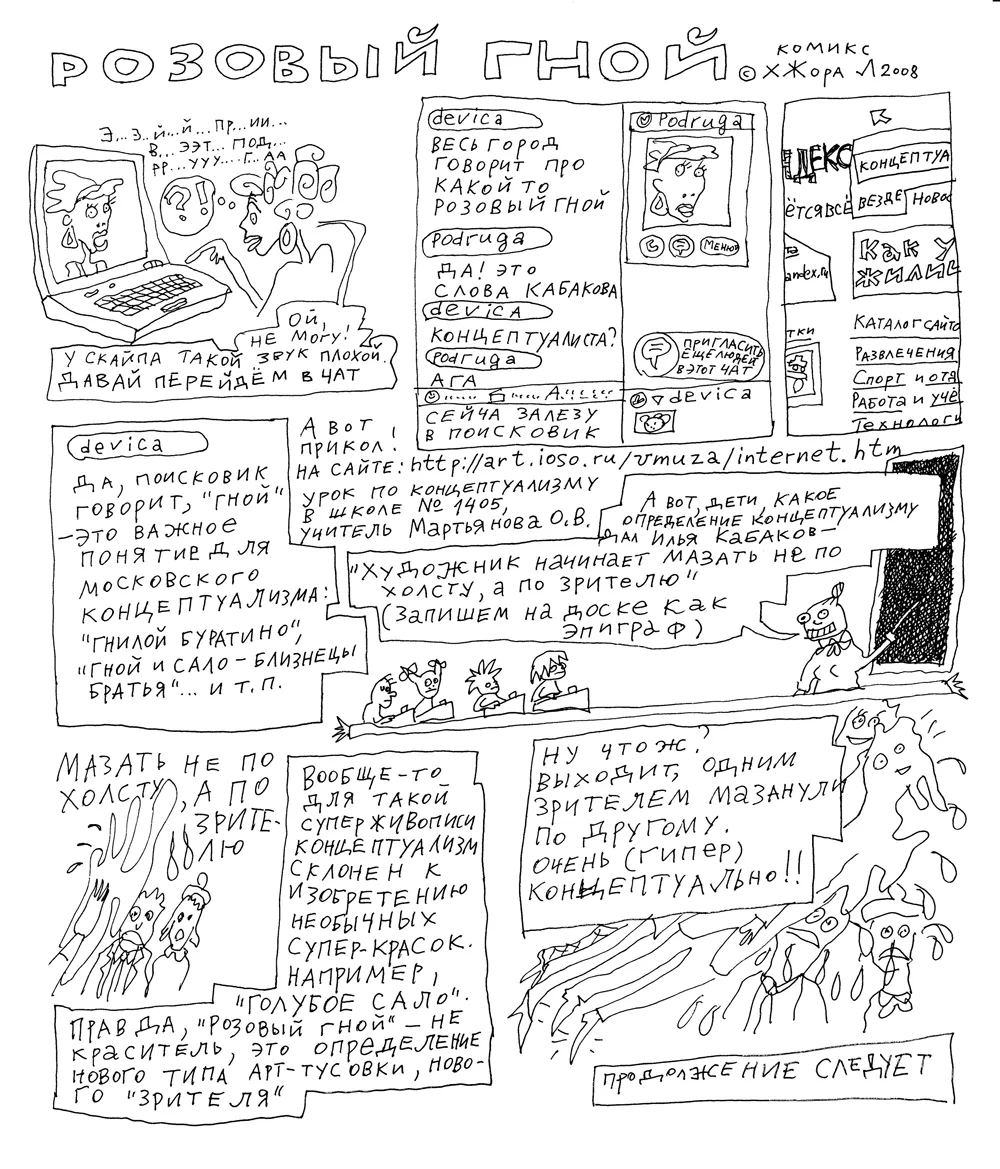 РОЗОВЫЙ ГНОЙ
КОМИКС
© ХЖОРА Л 2008
Э...З..Й...Й...ПР...ИИ...
В...ЭЭТ...ПОД...
РР...УУУ....Г..АА
?!
ОЙ,
НЕ МОГУ!
У СКАЙПА ТАКОЙ ЗВУК ПЛОХОЙ.
ДАВАЙ ПЕРЕЙДЁМ В ЧАТ
devica
ВЕСЬ ГОРОД
ГОВОРИТ ПРО
КАКОЙ ТО
РОЗОВЫЙ ГНОЙ
podruga
ДА! ЭТО
СЛОВА КАБАКОВА
devica
КОНЦЕПТУАЛИСТА?
podruga
АГА
СЕЙЧА ЗАЛЕЗУ
В ПОИСКОВИК
Podruga
МЕНЮ
ПРИГЛАСИТЬ
ЕЩЕ ЛЮДЕЙ
В ЭТОТ ЧАТ
devica
ДЕКС
КОНЦЕПТУА
ЁТСЯ ВСЁ
ВЕЗДЕ
НОВОС
andex.ru
КАК У
ЖИЛИЩ
ТКИ
КАТАЛОГ САЙТО
РАЗВЛЕЧЕНИЯ
СПОРТ И ОТД
РАБОТА И УЧЁ
ТЕХНОЛОГИ
devica
ДА, ПОИСКОВИК
ГОВОРИТ, "ГНОЙ"
- ЭТО ВАЖНОЕ
ПОНЯТИЕ ДЛЯ
МОСКОВСКОГО
КОНЦЕПТУАЛИЗМА:
"ГНИЛОЙ БУРАТИНО",
"ГНОЙ И САЛО - БЛИЗНЕЦЫ
БРАТЬЯ"... И Т.П.
А ВОТ
ПРИКОЛ!
НА САЙТЕ: http://art.ioso.ru/vmuza/internet.htm
УРОК ПО КОНЦЕПТУАЛИЗМУ
В ШКОЛЕ № 1405,
УЧИТЕЛЬ МАРТЬЯНОВА О.В.
А ВОТ, ДЕТИ, КАКОЕ
ОПРЕДЕЛЕНИЕ КОНЦЕПТУАЛИЗМУ
ДАЛ ИЛЬЯ КАБАКОВ -
"ХУДОЖНИК НАЧИНАЕТ МАЗАТЬ НЕ ПО
ХОЛСТУ, А ПО ЗРИТЕЛЮ"
(ЗАПИШЕМ НА ДОСКЕ КАК
ЭПИГРАФ)
МАЗАТЬ НЕ ПО
ХОЛСТУ, А ПО
ЗРИТЕ-
ЛЮ
ВООБЩЕ-ТО
ДЛЯ ТАКОЙ
СУПЕР ЖИВОПИСИ
КОНЦЕПТУАЛИЗМ
СКЛОНЕН К
ИЗОБРЕТЕНИЮ
НЕОБЫЧНЫХ
СУПЕР-КРАСОК.
НАПРИМЕР,
"ГОЛУБОЕ САЛО".
ПРАВДА, "РОЗОВЫЙ ГНОЙ" - НЕ
КРАСИТЕЛЬ, ЭТО ОПРЕДЕЛЕНИЕ
НОВОГО ТИПА АРТ-ТУСОВКИ, НОВО-
ГО "ЗРИТЕЛЯ"
НУ ЧТО Ж?
ВЫХОДИТ, ОДНИМ
ЗРИТЕЛЕМ МАЗАНУЛИ
ПО ДРУГОМУ.
ОЧЕНЬ (ГИПЕР)
КОНЦЕПТУАЛЬНО!!
ПРОДОЛЖЕНИЕ СЛЕДУЕТ